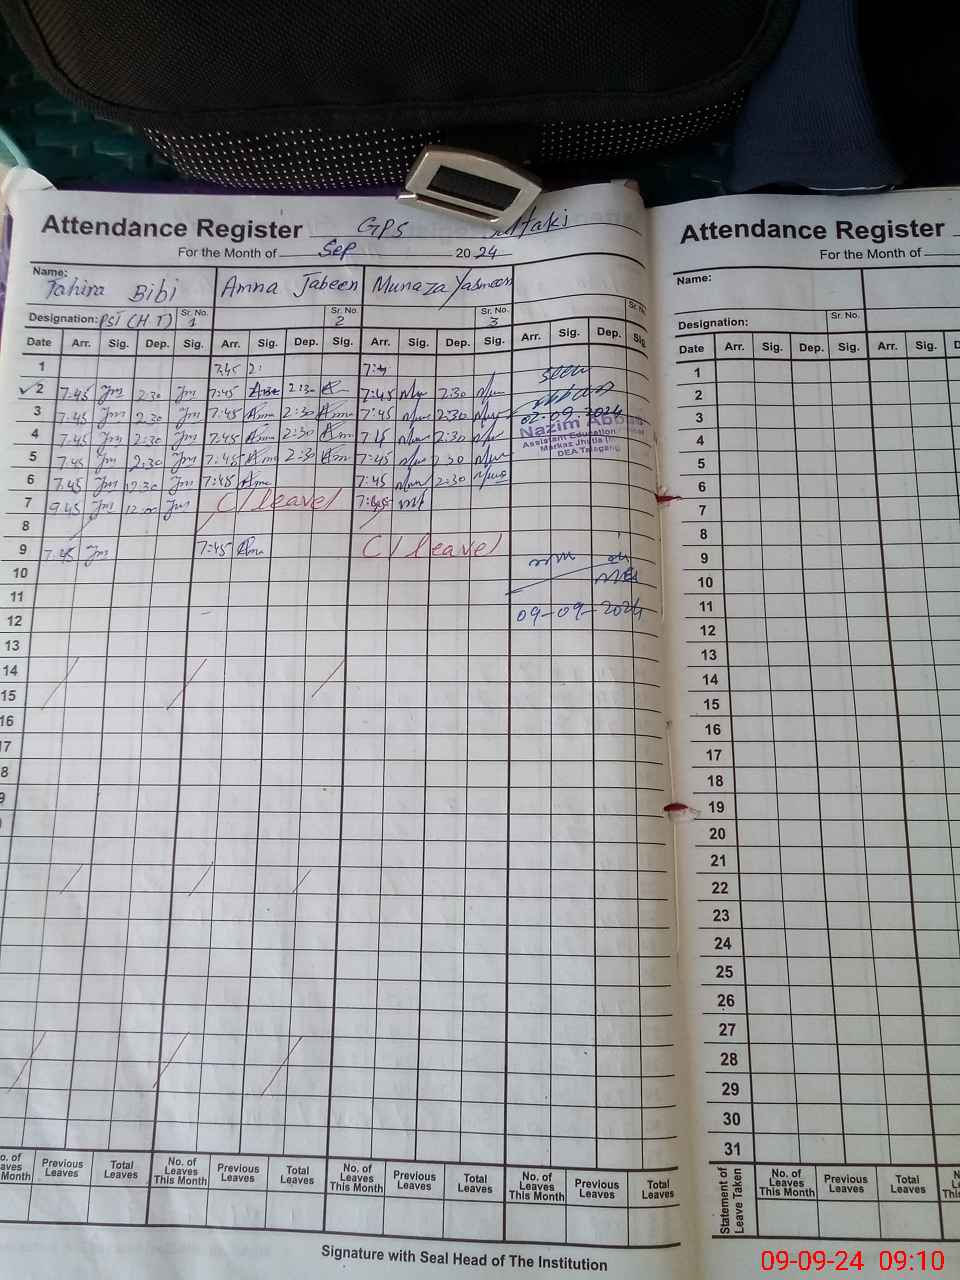 Attendance Register GPS
For the Month of Sep 2024
Name: Tahira Bibi Amna Jabeen Munaza Yasmeen
Designation: PST (H.T) Sr. No. 1 Sr. No. 2 Sr. No. 3 Sr. No.
Date Arr. Sig. Dep. Sig. Arr. Sig. Dep. Sig. Arr. Sig. Dep. Sig. Arr. Sig. Dep. Sig.
1 7:45 2: 7:4
2 7:45 Jm 2:30 Jm 7:45 2:30 7:45 2:30 seen
3 7:45 Jm 2:30 Jm 7:45 Amn 2:30 Amn 7:45 2:30 02-09-2024
4 7:45 Jm 2:30 Jm 7:45 Amn 2:30 Amn 7:45 2:30 Nazim Abbas
Assistant Education
Markaz
DEA Talagang
5 7:45 Jm 2:30 Jm 7:45 Amn 2:30 Amn 7:45 2:30
6 7:45 Jm 2:30 Jm 7:45 Amn 7:45 2:30
7 9:45 Jm 12:00 Jm C/leave
8
9 7:45 Jm 7:45 Amn C/leave
10 MEA
11
12 09-09-2024
13
14
15
16
17
8
9
No. of Leaves This Month Previous Leaves Total Leaves No. of Leaves This Month Previous Leaves Total Leaves No. of Leaves This Month Previous Leaves Total Leaves No. of Leaves This Month Previous Leaves Total Leaves
Signature with Seal Head of The Institution
Attendance Register
For the Month of
Name:
Designation: Sr. No.
Date Arr. Sig. Dep. Sig. Arr. Sig.
1
2
3
4
5
6
7
8
9
10
11
12
13
14
15
16
17
18
19
20
21
22
23
24
25
26
27
28
29
30
31
Statement of Leave Taken No. of Leaves This Month Previous Leaves Total Leaves
09-09-24 09:10